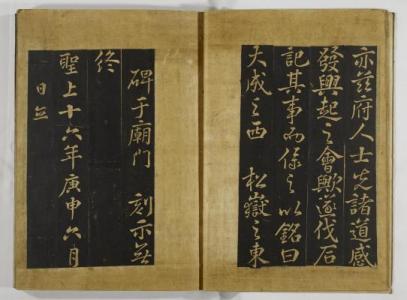 亦玆府人士先諸道感
發興起之會歟遂伐石
記其事而係之以銘曰
大成之西 松嶽之東
碑于廟門 刻示無
終
聖上十六年庚申六月
日立